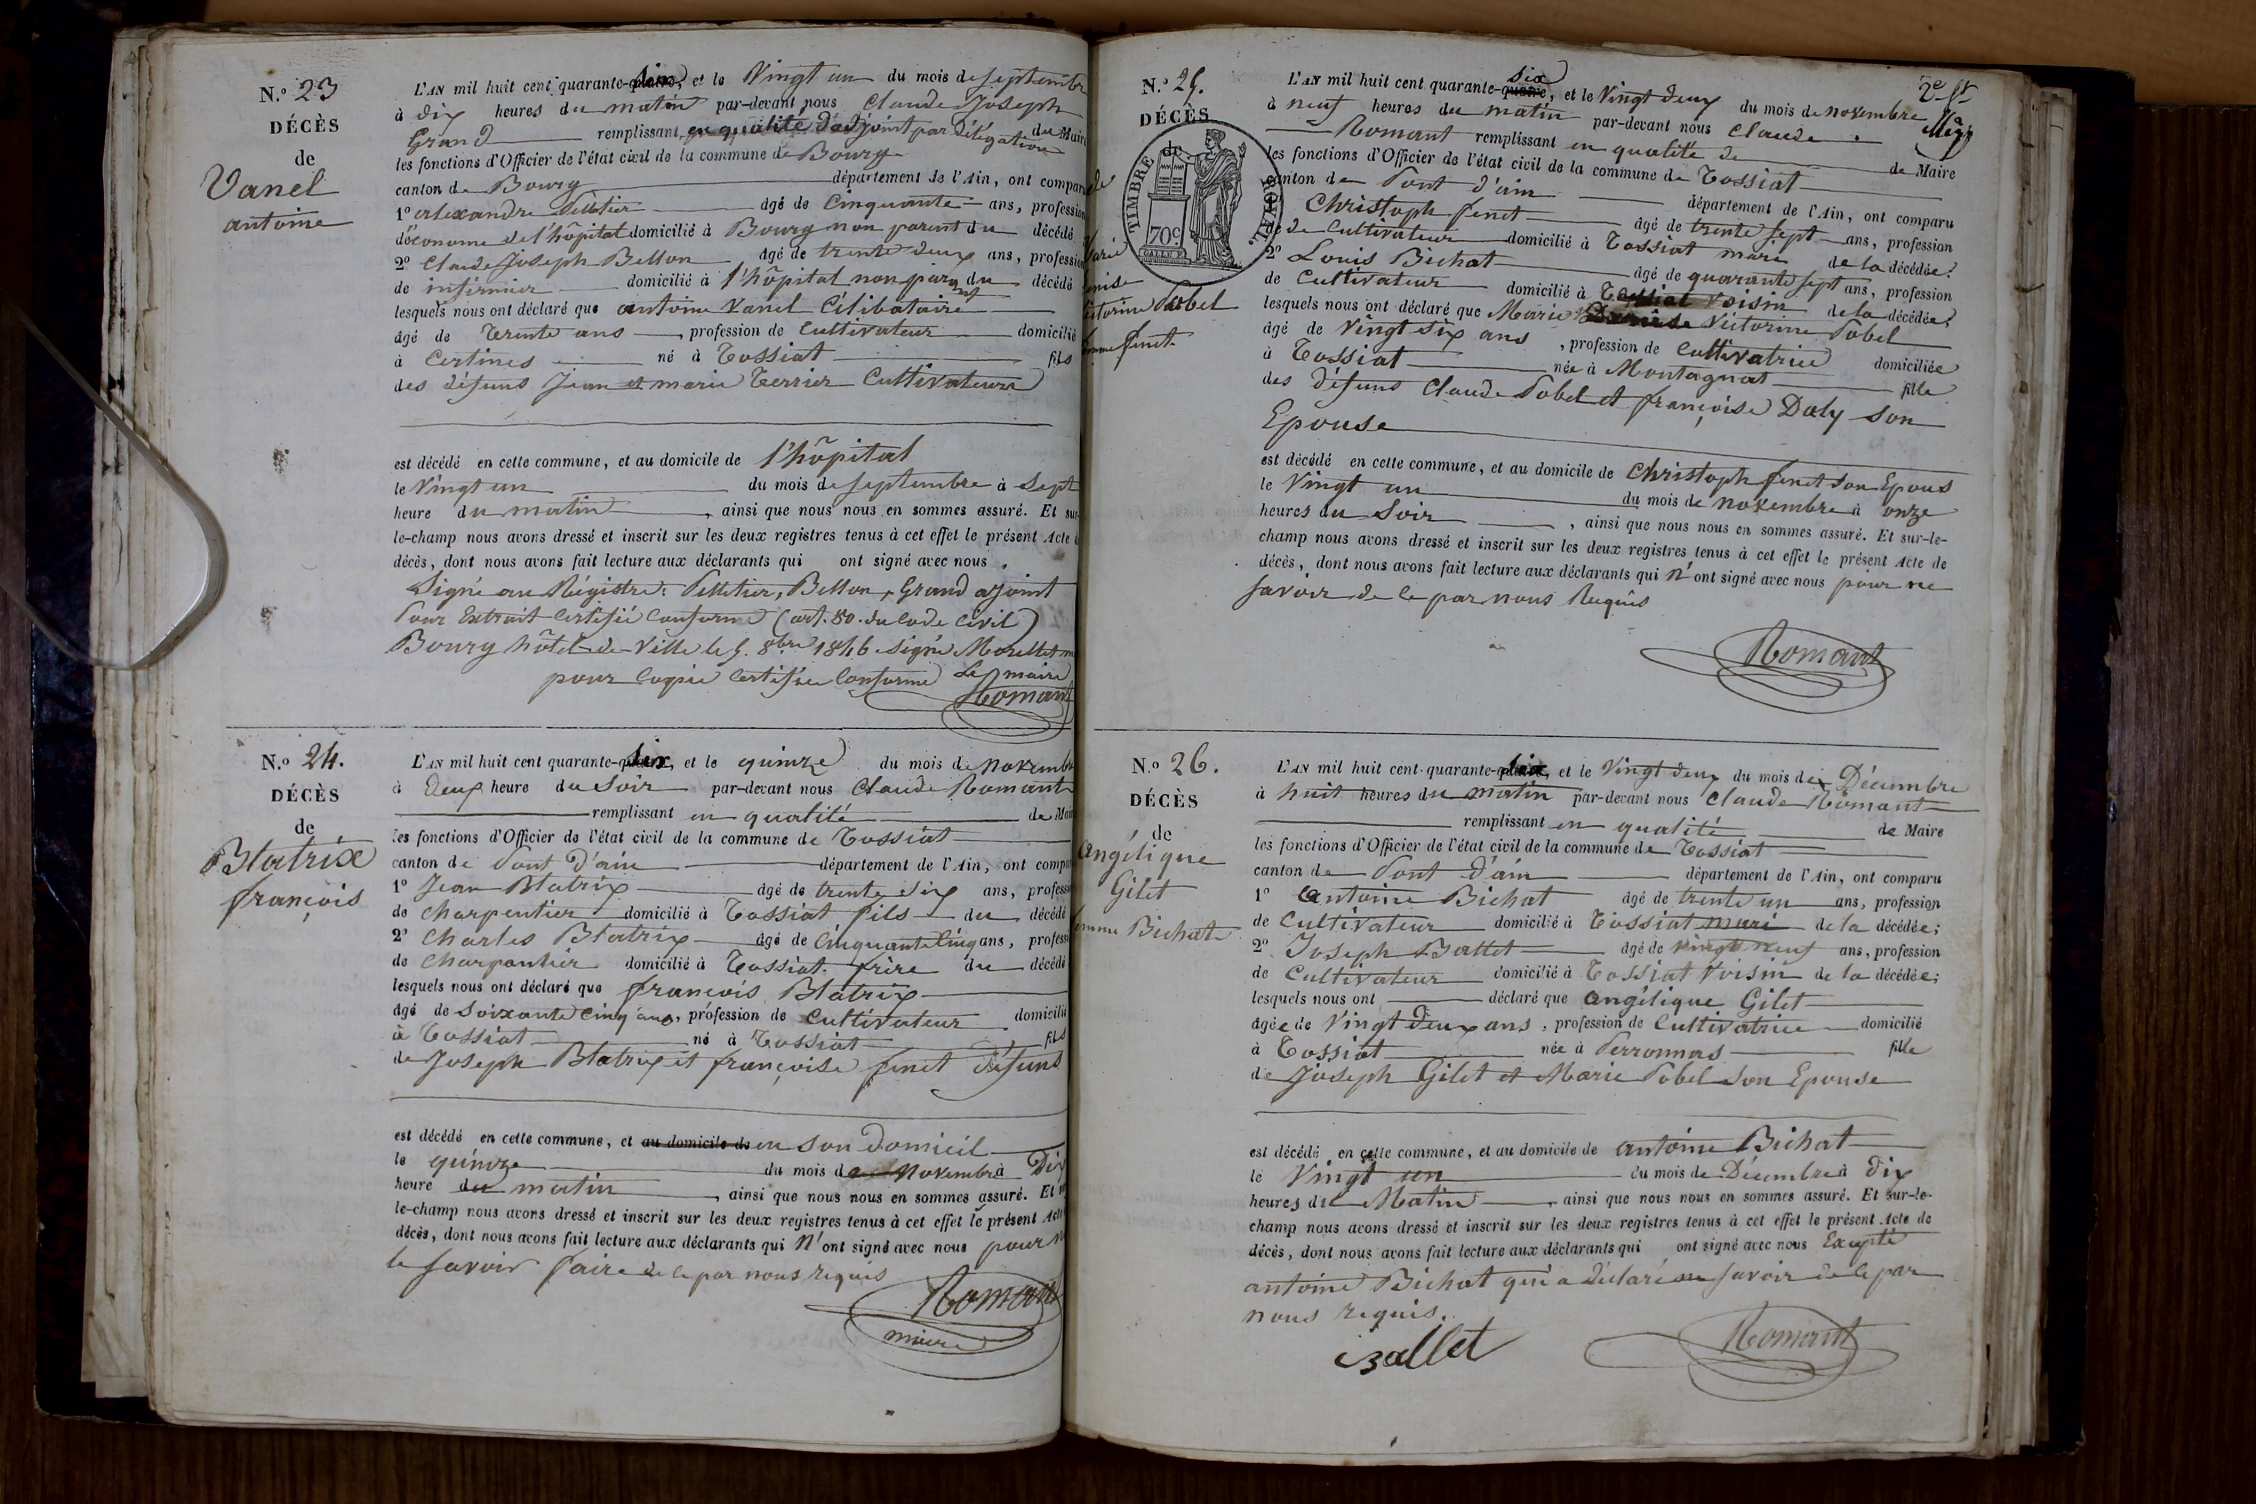 N.o 23
DÉCÈS
de
Vanel
antoine
L'AN mil huit cent quarante-six, et le Vingt un du mois de septembre
à dix heures du matin par-devant nous Claude Joseph
Grand remplissant en qualité d'adjoint par délégation du Maire
les fonctions d'Officier de l'état civil de la commune de Bourg
canton de Bourg département de l'Ain, ont comparu
1o alexandre Pelletier âgé de Cinquante ans, profession
d'économe de l'hôpital domicilié à Bourg non parent du décédé
2o Claude Joseph Bellon âgé de trente deux ans, profession
de infirmier domicilié à l'hôpital non parent du décédé
lesquels nous ont déclaré que antoine Vanel Célibataire
âgé de Trente ans profession de Cultivateur domicilié
à Certines né à Tossiat fils
des défuns Jean et marie Terrier Cultivateurs
est décédé en cette commune, et au domicile de l'hôpital
le Vingt un du mois de septembre à Sept
heure du matin, ainsi que nous nous en sommes assuré. Et sur-
le-champ nous avons dressé et inscrit sur les deux registres tenus à cet effet le présent Acte de
décès, dont nous avons fait lecture aux déclarants qui ont signé avec nous.
Signé au Régistre: Pelletier, Bellon, Grand ajoint
Pour Extrait Certifié Conforme (art. 80. du Code Civil)
Bourg hôtel de Ville le 5. 8bre 1846 Signé Morellet
pour Copie Certifiée Conforme Le maire
Romant
N.o 24.
DÉCÈS
de
Blatrix
françois
L'AN mil huit cent quarante-six, et le quinze du mois de novembre
à deux heure du Soir par-devant nous Claude Romant
remplissant en qualité de Maire
les fonctions d'Officier de l'état civil de la commune de Tossiat
canton de Pont d'ain département de l'Ain, ont comparu
1o Jean Blatrix âgé de trente six ans, profession
de Charpentier domicilié à Tossiat fils du décédé
2o Charles Blatrix âgé de Cinquante Cinq ans, profession
de Charpentier domicilié à Tossiat frère du décédé
lesquels nous ont déclaré que françois Blatrix
âgé de Soixante Cinq ans, profession de Cultivateur domicilié
à Tossiat né à Tossiat fils
de Joseph Blatrix et françoise fenet défuns
est décédé en cette commune, et au domicile de en Son Domicil
le quinze du mois de Novembre à Dix
heure du matin, ainsi que nous nous en sommes assuré. Et sur-
le-champ nous avons dressé et inscrit sur les deux registres tenus à cet effet le présent Acte
décès, dont nous avons fait lecture aux déclarants qui n'ont signé avec nous pour ne
le Savoir faire de ce par nous requis
Romant
maire
N.o 25.
DÉCÈS
de
TIMBRE ROYAL.
70c
Marie
Denise
Victorine Pobel
femme fenet
2e ft
L'AN mil huit cent quarante-six, et le Vingt deux du mois de novembre
à neuf heures du matin par-devant nous Claude
Romant remplissant en qualité de de Maire
les fonctions d'Officier de l'état civil de la commune de Tossiat
canton de Pont d'ain département de l'Ain, ont comparu
Christoph fenet âgé de trente sept ans, profession
de Cultivateur domicilié à Tossiat mari de la décédée;
2o Louis Bichat âgé de quarante sept ans, profession
de Cultivateur domicilié à Tossiat Voisin de la décédée;
lesquels nous ont déclaré que Marie Denise Victorine Pobel
âgé de Vingt six ans, profession de Cultivatrice domiciliée
à Tossiat née à Montagnat fille
des défuns Claude Pobel et françoise Daly son
Epouse
est décédé en cette commune, et au domicile de Christoph fenet son Epous
le Vingt un du mois de novembre à onze
heures du Soir, ainsi que nous nous en sommes assuré. Et sur-le-
champ nous avons dressé et inscrit sur les deux registres tenus à cet effet le présent Acte de
décès, dont nous avons fait lecture aux déclarants qui n'ont signé avec nous pour ne
savoir de ce par nous Requis
Romant
N.o 26.
DÉCÈS
de
Angélique
Gilet
femme Bichat
L'AN mil huit cent quarante-six, et le Vingt deux du mois de Décembre
à huit heures du matin par-devant nous Claude Romant
remplissant en qualité de Maire
les fonctions d'Officier de l'état civil de la commune de Tossiat
canton de Pont d'ain département de l'Ain, ont comparu
1o Antoine Bichat âgé de trente un ans, profession
de Cultivateur domicilié à Tossiat mari de la décédée;
2o Joseph Ballet âgé de vingt neuf ans, profession
de Cultivateur domicilié à Tossiat Voisin de la décédée;
lesquels nous ont déclaré que Angélique Gilet
âgée de Vingt Deux ans, profession de Cultivatrice domicilié
à Tossiat née à Perronnas fille
de Joseph Gilet et Marie Pobel son Epouse
est décédé en cette commune, et au domicile de antoine Bichat
le Vingt un du mois de Décembre à dix
heures du Matin, ainsi que nous nous en sommes assuré. Et sur-le-
champ nous avons dressé et inscrit sur les deux registres tenus à cet effet le présent Acte de
décès, dont nous avons fait lecture aux déclarants qui ont signé avec nous Excepté
antoine Bichat qui a déclaré ne savoir de ce par
nous requis.
Ballet
Romant